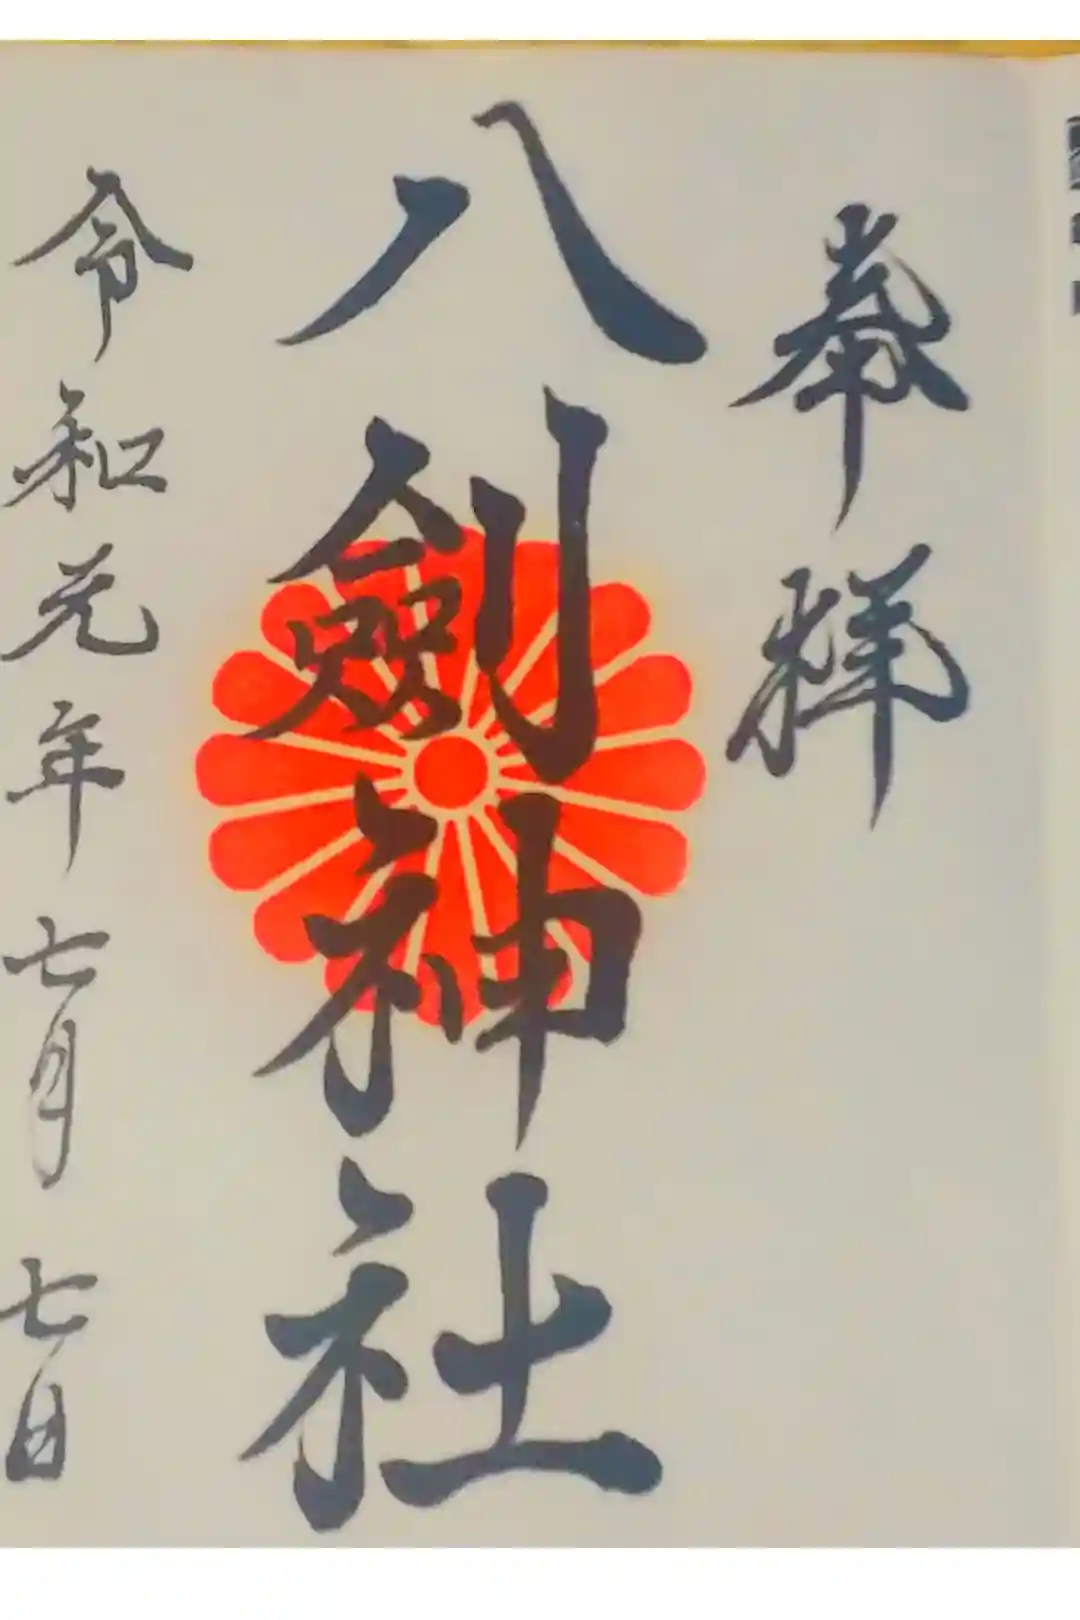 奉拝
八劍神社
令和元年七月七日